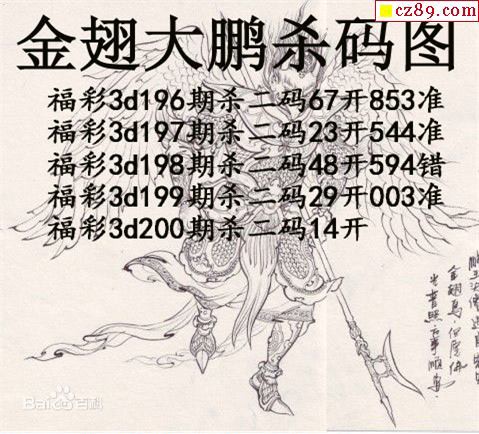 cz89.com
金翅大鹏杀码图
福彩3d196期杀二码67开853准
福彩3d197期杀二码23开544准
福彩3d198期杀二码48开594错
福彩3d199期杀二码29开003准
福彩3d200期杀二码14开
Baidu百科